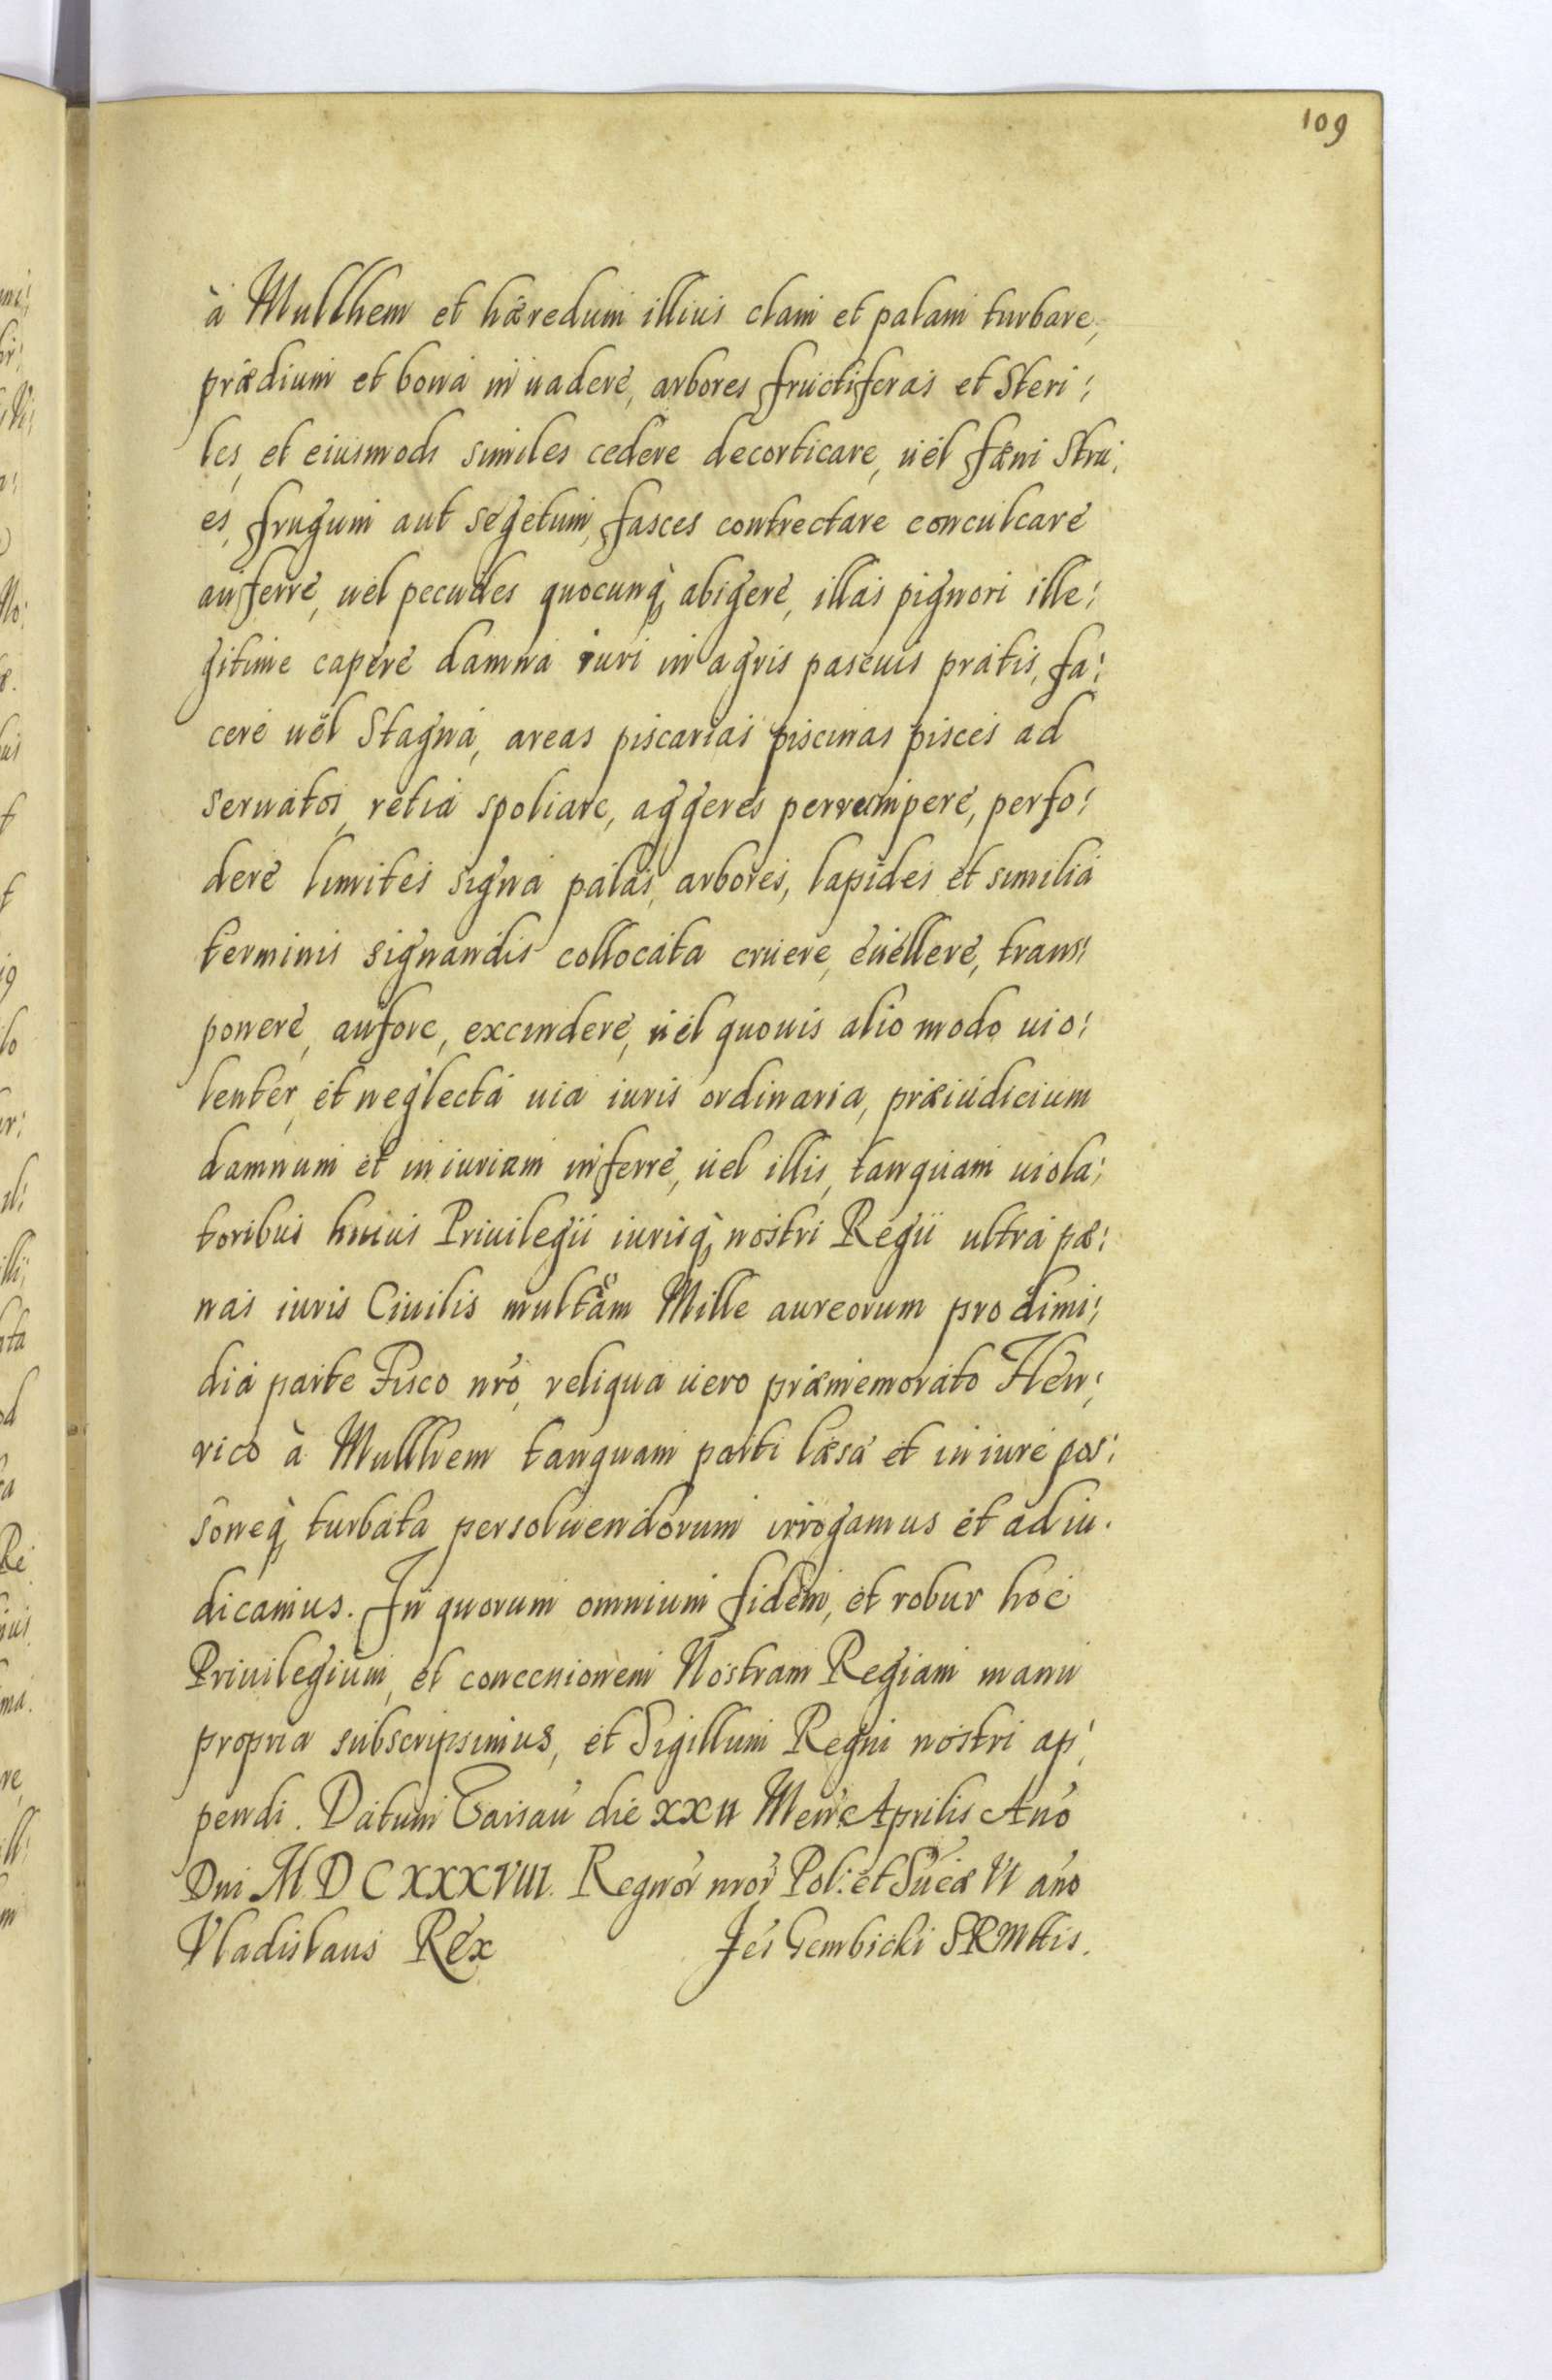 109
à Mullhem et hæredum illius clam et palam turbare,
prædium et bona inuadere, arbores fructiferas et Steri:
les, et eiusmodi similes cedere decorticare, uel fæni Stru:
es, frugum aut segetum, fasces contrectare conculcare
auferre, uel pecudes quocunq; abigere, illas pignori ille:
gitime capere damna iuri in agris pascuis pratis, fa:
cere uel Stagna, areas piscarias piscinas pisces ad
seruatos, retia spoliare, aggeres perrumpere, perfo:
dere limites signa palas, arbores, lapides et similia
terminis signandis collocata eruere, euellere, trans:
ponere, aufore, excindere, uel quouis alio modo uio:
lenter, et neglecta uia iuris ordinaria, præiudicium
damnum et iniuriam inferre, uel illis, tanquam uiola:
toribus huius Priuilegii iurisq; nostri Regii ultra pæ:
nas iuris Ciuilis multam Mille aureorum pro dimi:
dia parte Fisco nro, reliqua uero præmemorato Hen:
rico à Mullhem tanquam parti læsa et in iure pos:
soneq; turbata persoluendorum irrogamus et adiu.
dicamus. In quorum omnium fidem, et robur hoc
Priuilegium, et concenionem Nostram Regiam manu
propria subscripsimus, et Sigillum Regni nostri ap:
pendi. Datum Varsau die XXII Mens Aprilis Ano
Dni M D C XXXVIII. Regnor nror Pol: et Sueæ VI ano
Vladislaus Rex Jes Gembicki SRMttis.